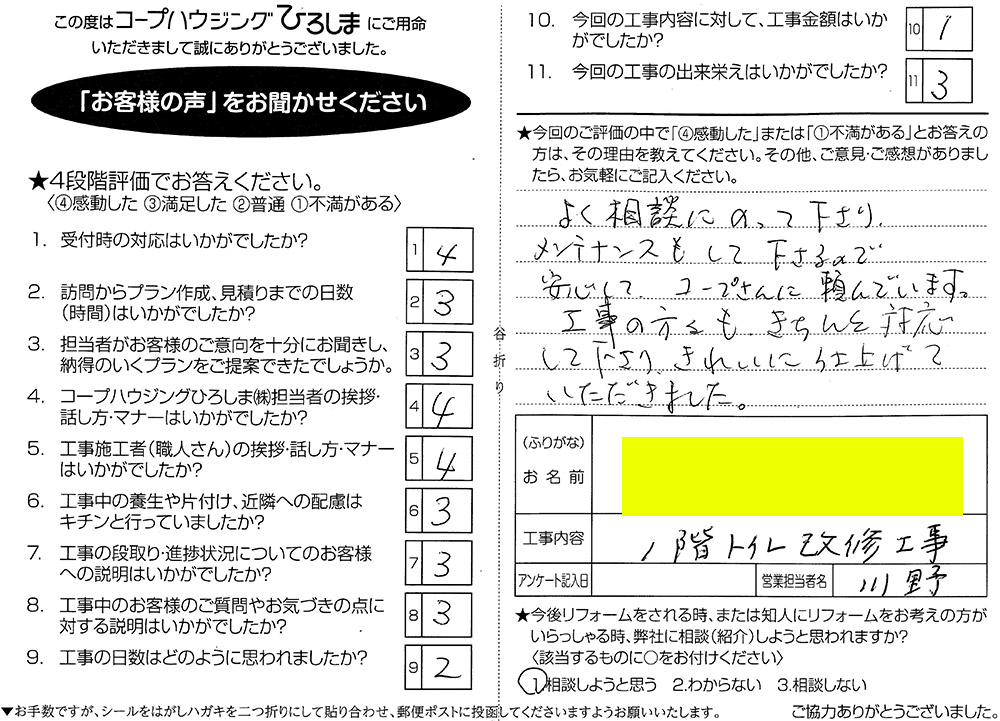 この度はコープハウジングひろしまにご用命
いただきまして誠にありがとうございました。
「お客様の声」をお聞かせください
★4段階評価でお答えください。
〈④感動した ③満足した ②普通 ①不満がある〉
1. 受付時の対応はいかがでしたか?
1 4
2. 訪問からプラン作成、見積りまでの日数
(時間)はいかがでしたか?
2 3
3. 担当者がお客様のご意向を十分にお聞きし、
納得のいくプランをご提案できたでしょうか。
3 3
4. コープハウジングひろしま㈱担当者の挨拶・
話し方・マナーはいかがでしたか?
4 4
5. 工事施工者(職人さん)の挨拶・話し方・マナー
はいかがでしたか?
5 4
6. 工事中の養生や片付け、近隣への配慮は
キチンと行っていましたか?
6 3
7. 工事の段取り・進捗状況についてのお客様
への説明はいかがでしたか?
7 3
8. 工事中のお客様のご質問やお気づきの点に
対する説明はいかがでしたか?
8 3
9. 工事の日数はどのように思われましたか?
9 2
▼お手数ですが、シールをはがしハガキを二つ折りにして貼り合わせ、郵便ポストに投函してくださいますようお願いいたします。
谷折り
10. 今回の工事内容に対して、工事金額はいか
がでしたか?
10 1
11. 今回の工事の出来栄えはいかがでしたか?
11 3
★今回のご評価の中で「④感動した」または「①不満がある」とお答えの
方は、その理由を教えてください。その他、ご意見・ご感想がありまし
たら、お気軽にご記入ください。
よく相談にのって下さり、
メンテナンスもして下さるので
安心して、コープさんに頼んでいます。
工事の方々も、きちんと対応
して下さり、きれいに仕上げて
いただきました。
(ふりがな)
お名前
工事内容 1階トイレ改修工事
アンケート記入日 営業担当者名 川野
★今後リフォームをされる時、または知人にリフォームをお考えの方が
いらっしゃる時、弊社に相談(紹介)しようと思われますか?
〈該当するものに○をお付けください〉
1.相談しようと思う 2.わからない 3.相談しない
ご協力ありがとうございました。